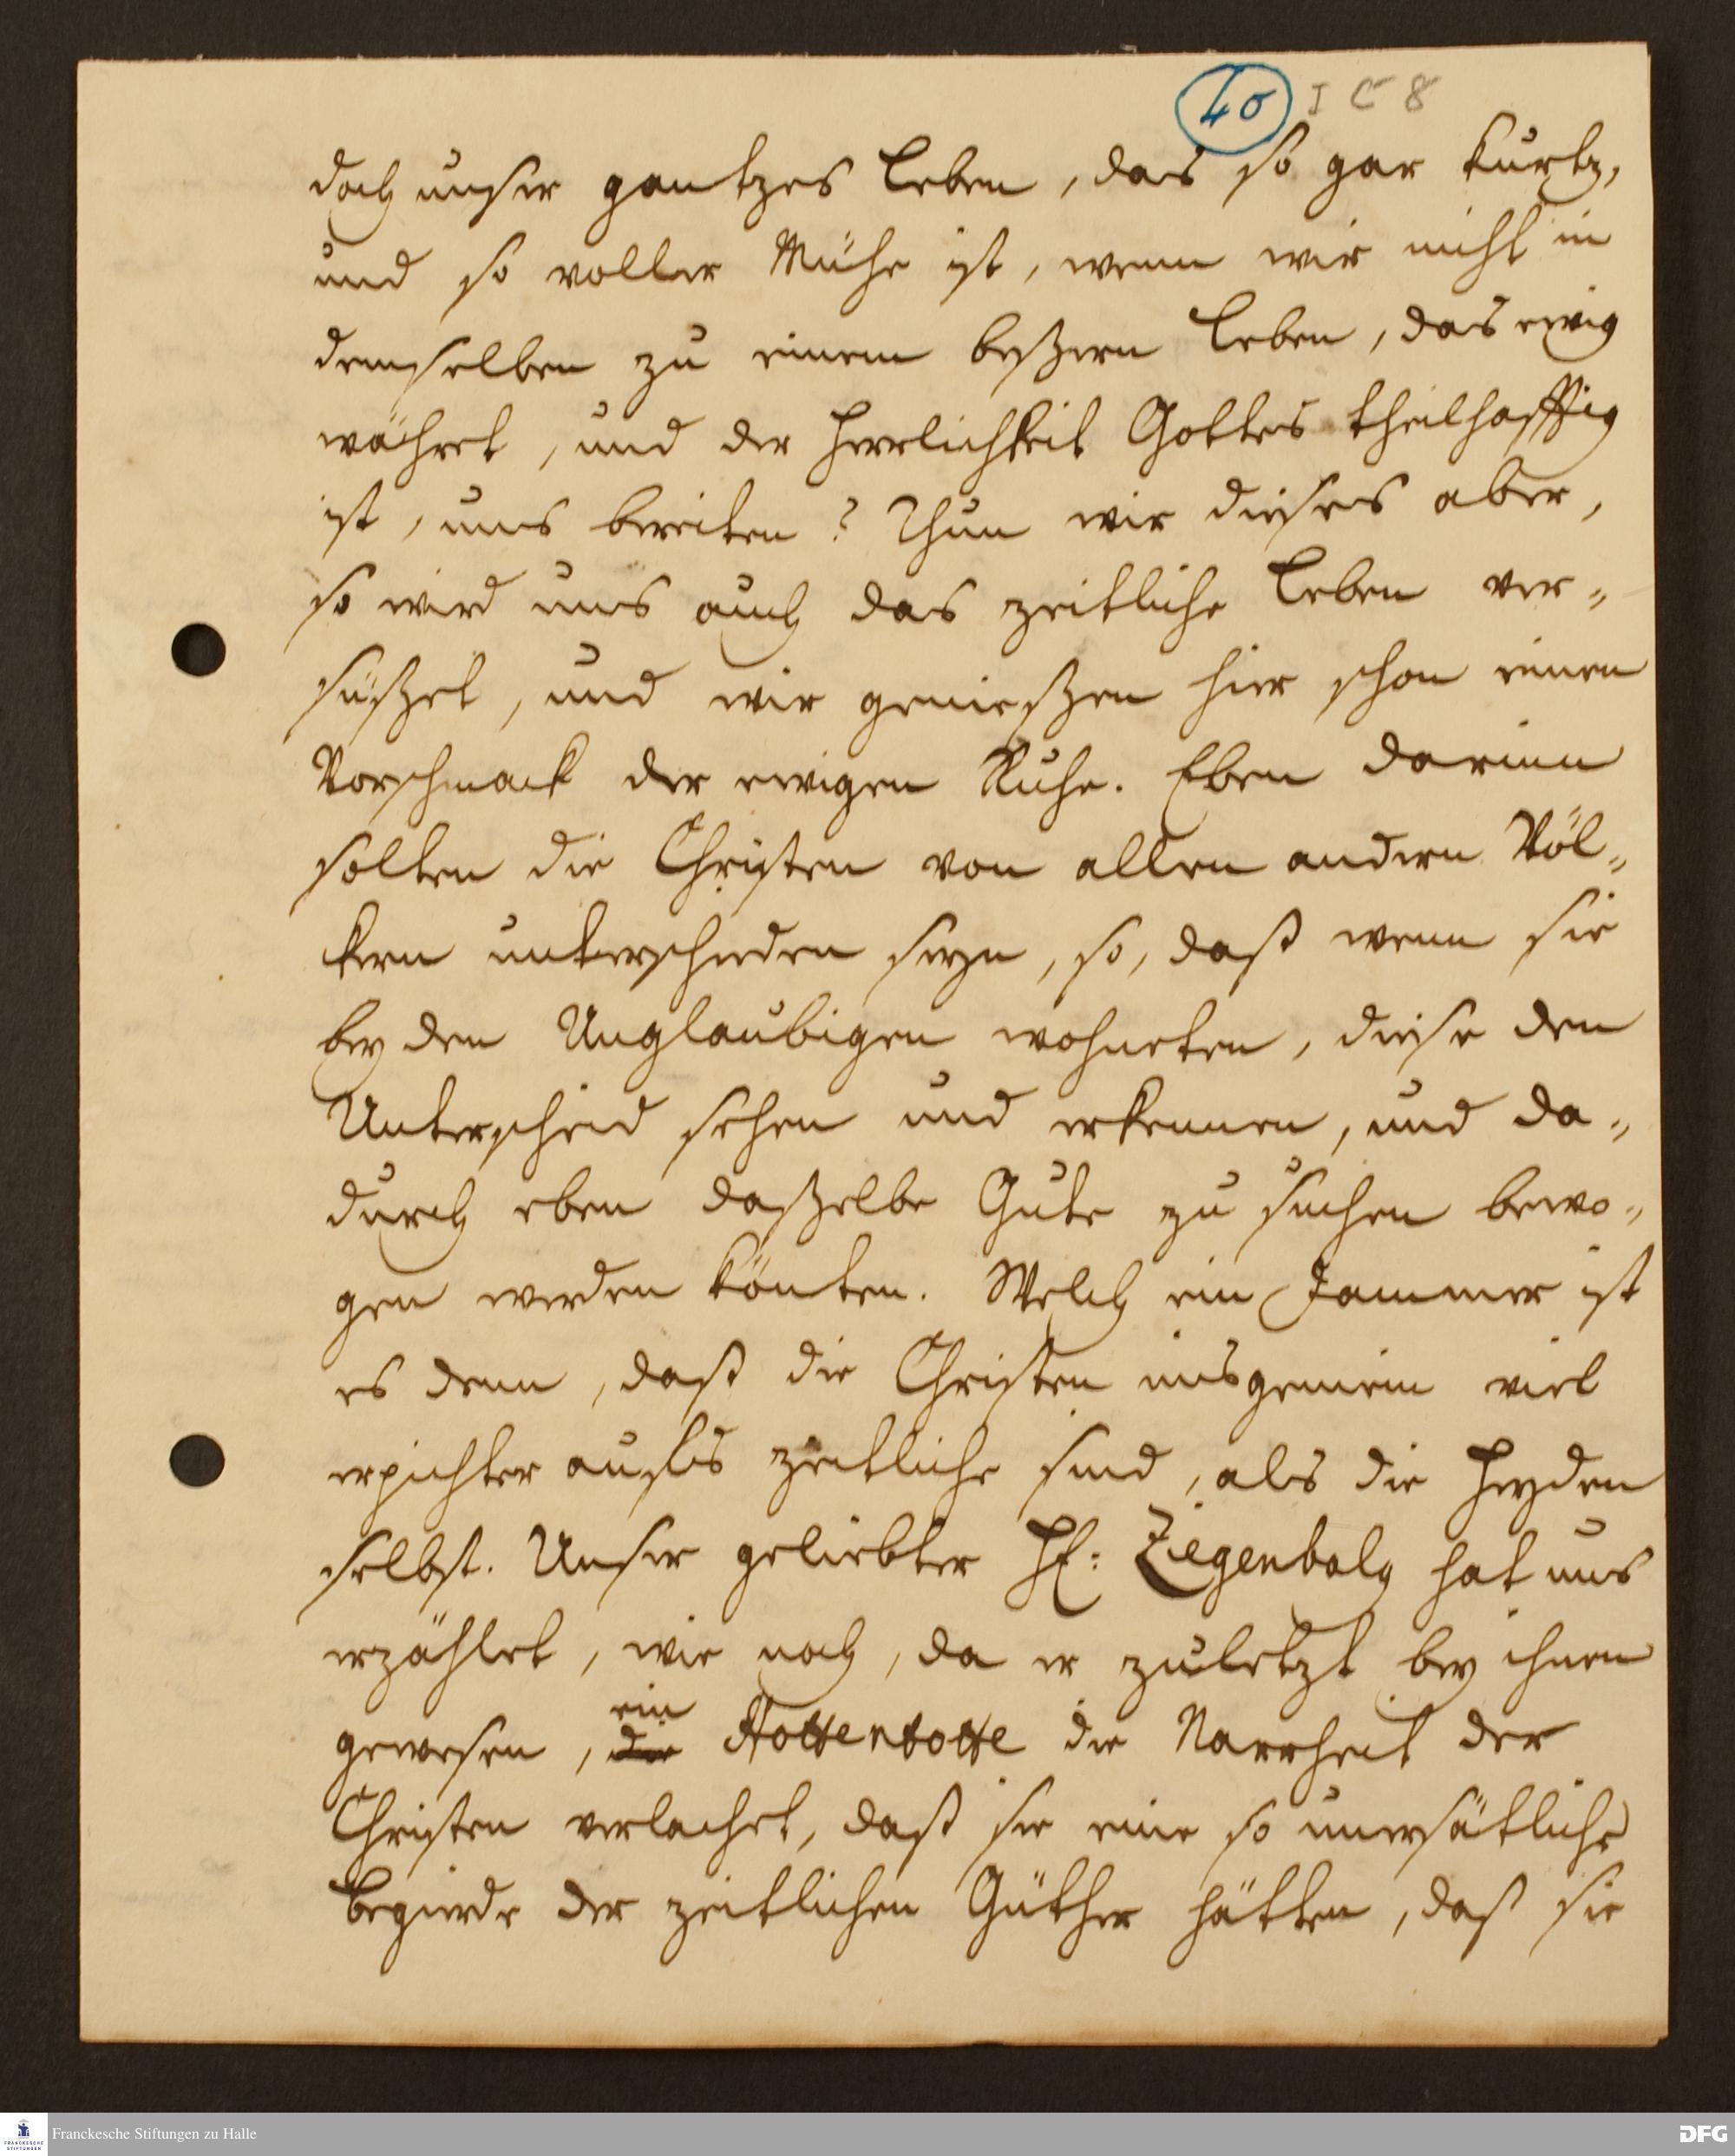 40 I C 8
doch unser gantzes Leben, das so gar kurtz,
und so voller Mühe ist, wenn wir nicht in
demselben zu einem beßern Leben, das ewig
währet, und der Herrlichkeit Gottes theilhafftig
ist, uns bereiten? Thun wir dieses aber,
so wird uns auch das zeitliche Leben ver-
süßet, und wir genießen hier schon einen
Vorschmack der ewigen Ruhe. Eben darinn
solten die Christen von allen andern Völ-
kern unterschieden seyn, so, daß wenn sie
bey den Unglaubigen wohneten, diese den
Unterscheid sehen und erkennen, und da-
durch eben daßelbe Gute zu suchen bewo-
gen werden könten. Welch ein Jammer ist
es denn, daß die Christen insgemein viel
erpichter aufs zeitliche sind, als die Heyden
selbst. Unser geliebter H: Ziegenbalg hat uns
erzählet, wie noch, da er zuletzt bey ihnen
ein
gewesen, die Hottentotte die Narrheit der
Christen verlachet, daß sie eine so unersätliche
Begierde der zeitlichen Güther hätten, daß sie
FRANCKESCHE STIFTUNGEN
Franckesche Stiftungen zu Halle
DFG